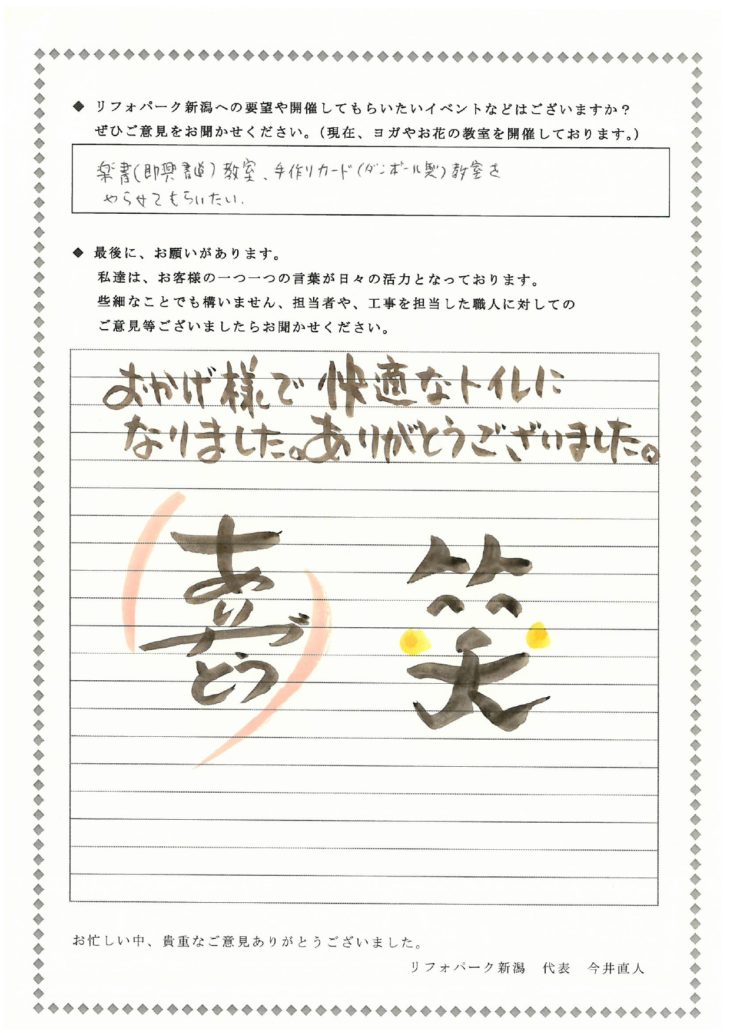 ◆ リフォパーク新潟への要望や開催してもらいたいイベントなどはございますか？
ぜひご意見をお聞かせください。（現在、ヨガやお花の教室を開催しております。）
楽書（即興書道）教室、手作りカード（ダンボール製）教室を
やらせてもらいたい.
◆ 最後に、お願いがあります。
私達は、お客様の一つ一つの言葉が日々の活力となっております。
些細なことでも構いません、担当者や、工事を担当した職人に対しての
ご意見等ございましたらお聞かせください。
おかげ様で 快適なトイレに
なりました。ありがとうございました。
ありがとう
笑
お忙しい中、貴重なご意見ありがとうございました。
リフォパーク新潟 代表 今井直人